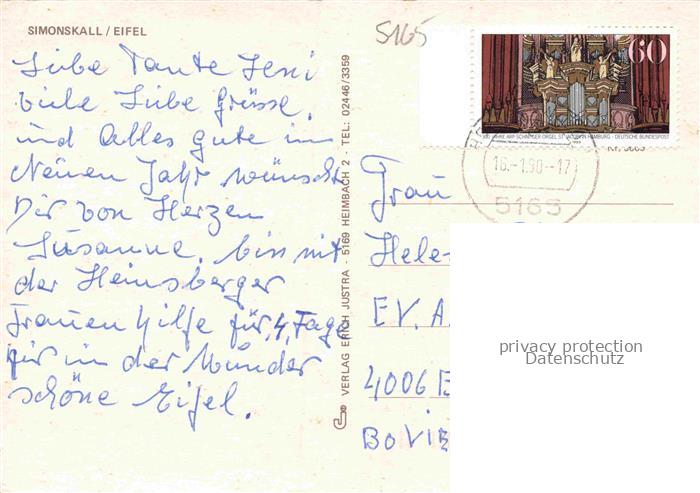 SIMONSKALL / EIFEL
5165
Liebe Tante Leni
viele Liebe Grüsse,
und Alles Gute im
Neuen Jahr wünscht
Dir von Herzen
Susanne. bin mit
der Heinsberger
Frauenhilfe für 4 Tage
hir in der Wunder
schöne Eifel.
VERLAG ERICH JUSTRA · 5169 HEIMBACH 2 - TEL: 02446/3359
60
300 JAHRE ARP SCHNITGER ORGEL ST. JACOBI HAMBURG · DEUTSCHE BUNDESPOST
16.-1.90-17
5165
Frau
Hele
EV. A
4006 E
BOVIE
privacy protection
Datenschutz